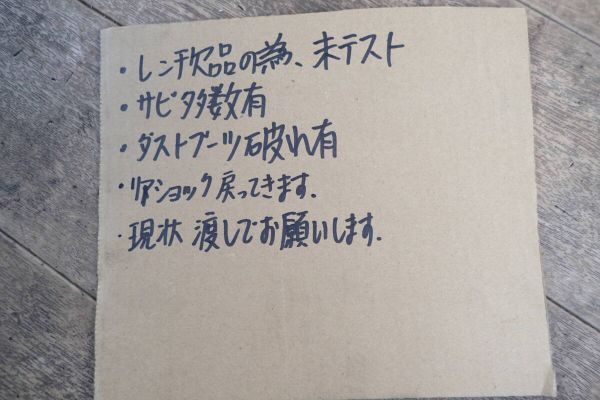 ・レンチ欠品の為、未テスト
・サビ多数有
・ダストブーツ破れ有
・リアショック戻ってきます.
・現状渡しでお願いします.